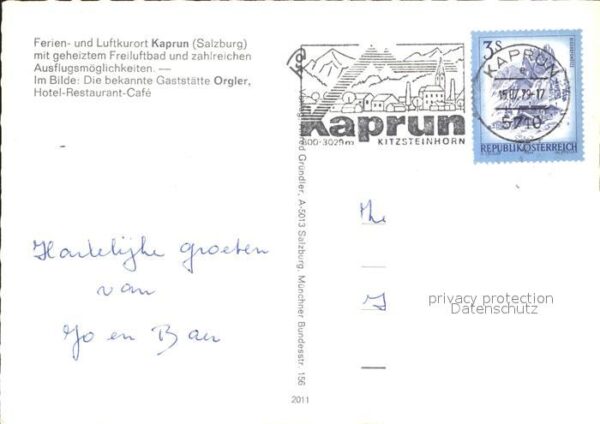 Ferien- und Luftkurort Kaprun (Salzburg)
mit geheiztem Freiluftbad und zahlreichen
Ausflugsmöglichkeiten. —
Im Bilde: Die bekannte Gaststätte Orgler,
Hotel-Restaurant-Café
Kaprun
800-3029m KITZSTEINHORN
3S
REPUBLIK ÖSTERREICH
KAPRUN
5710
Gründler, A-5013 Salzburg, Münchner Bundesstr. 156
2011
Hartelijke groeten
van
Jo en
privacy protection
Datenschutz